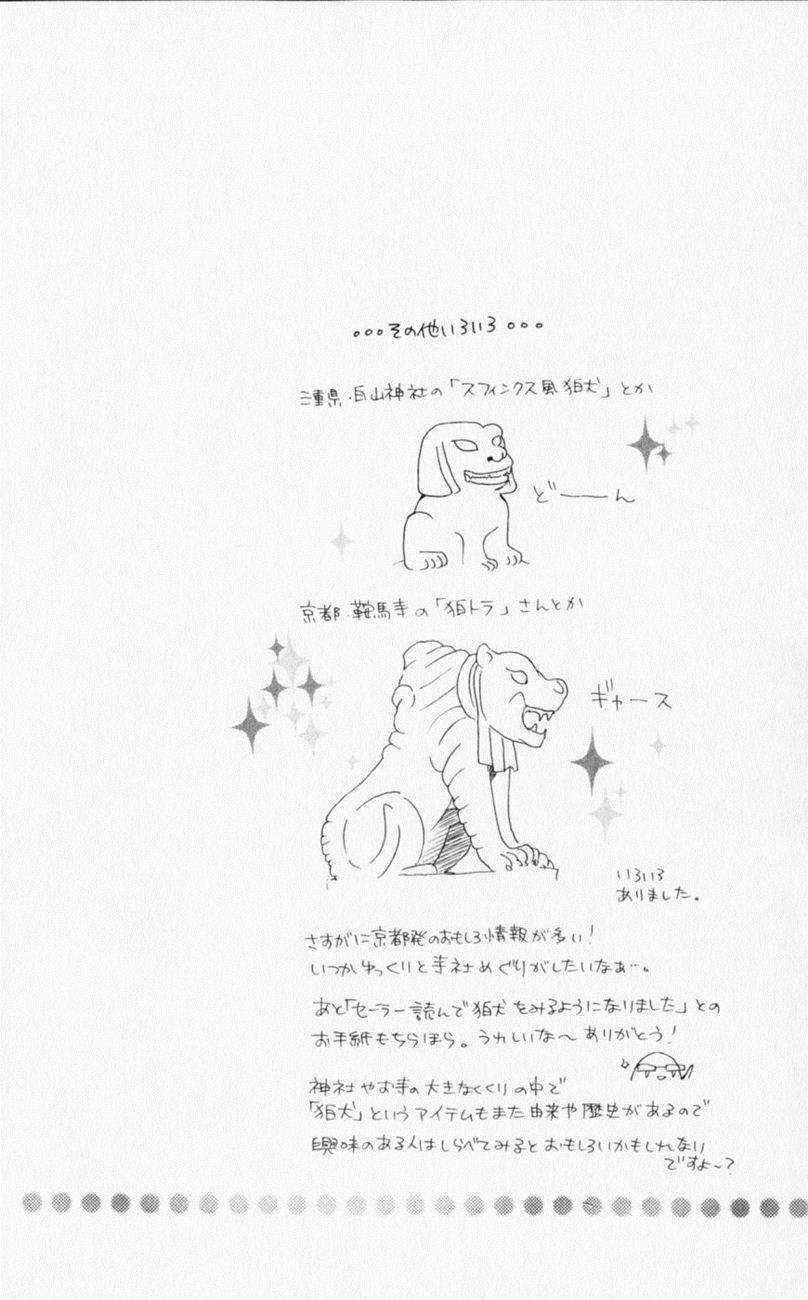 。。。その他いろいろ。。。
三重県・白山神社の「スフィンクス風狛犬」とか
どーーん
京都・鞍馬寺の「狛トラ」さんとか
ギャース
いろいろ
ありました。
さすがに京都発のおもしろ情報が多い!
いつかゆっくりと寺社めぐりがしたいなぁ…。
あと「セーラー読んで狛犬をみるようになりました」との
お手紙もちらほら。うれしいな〜ありがとう!
神社やお寺の大きなくくりの中で
「狛犬」というアイテムもまた由来や歴史があるので
興味のある人はしらべてみるとおもしろいかもしれない
ですよ〜?